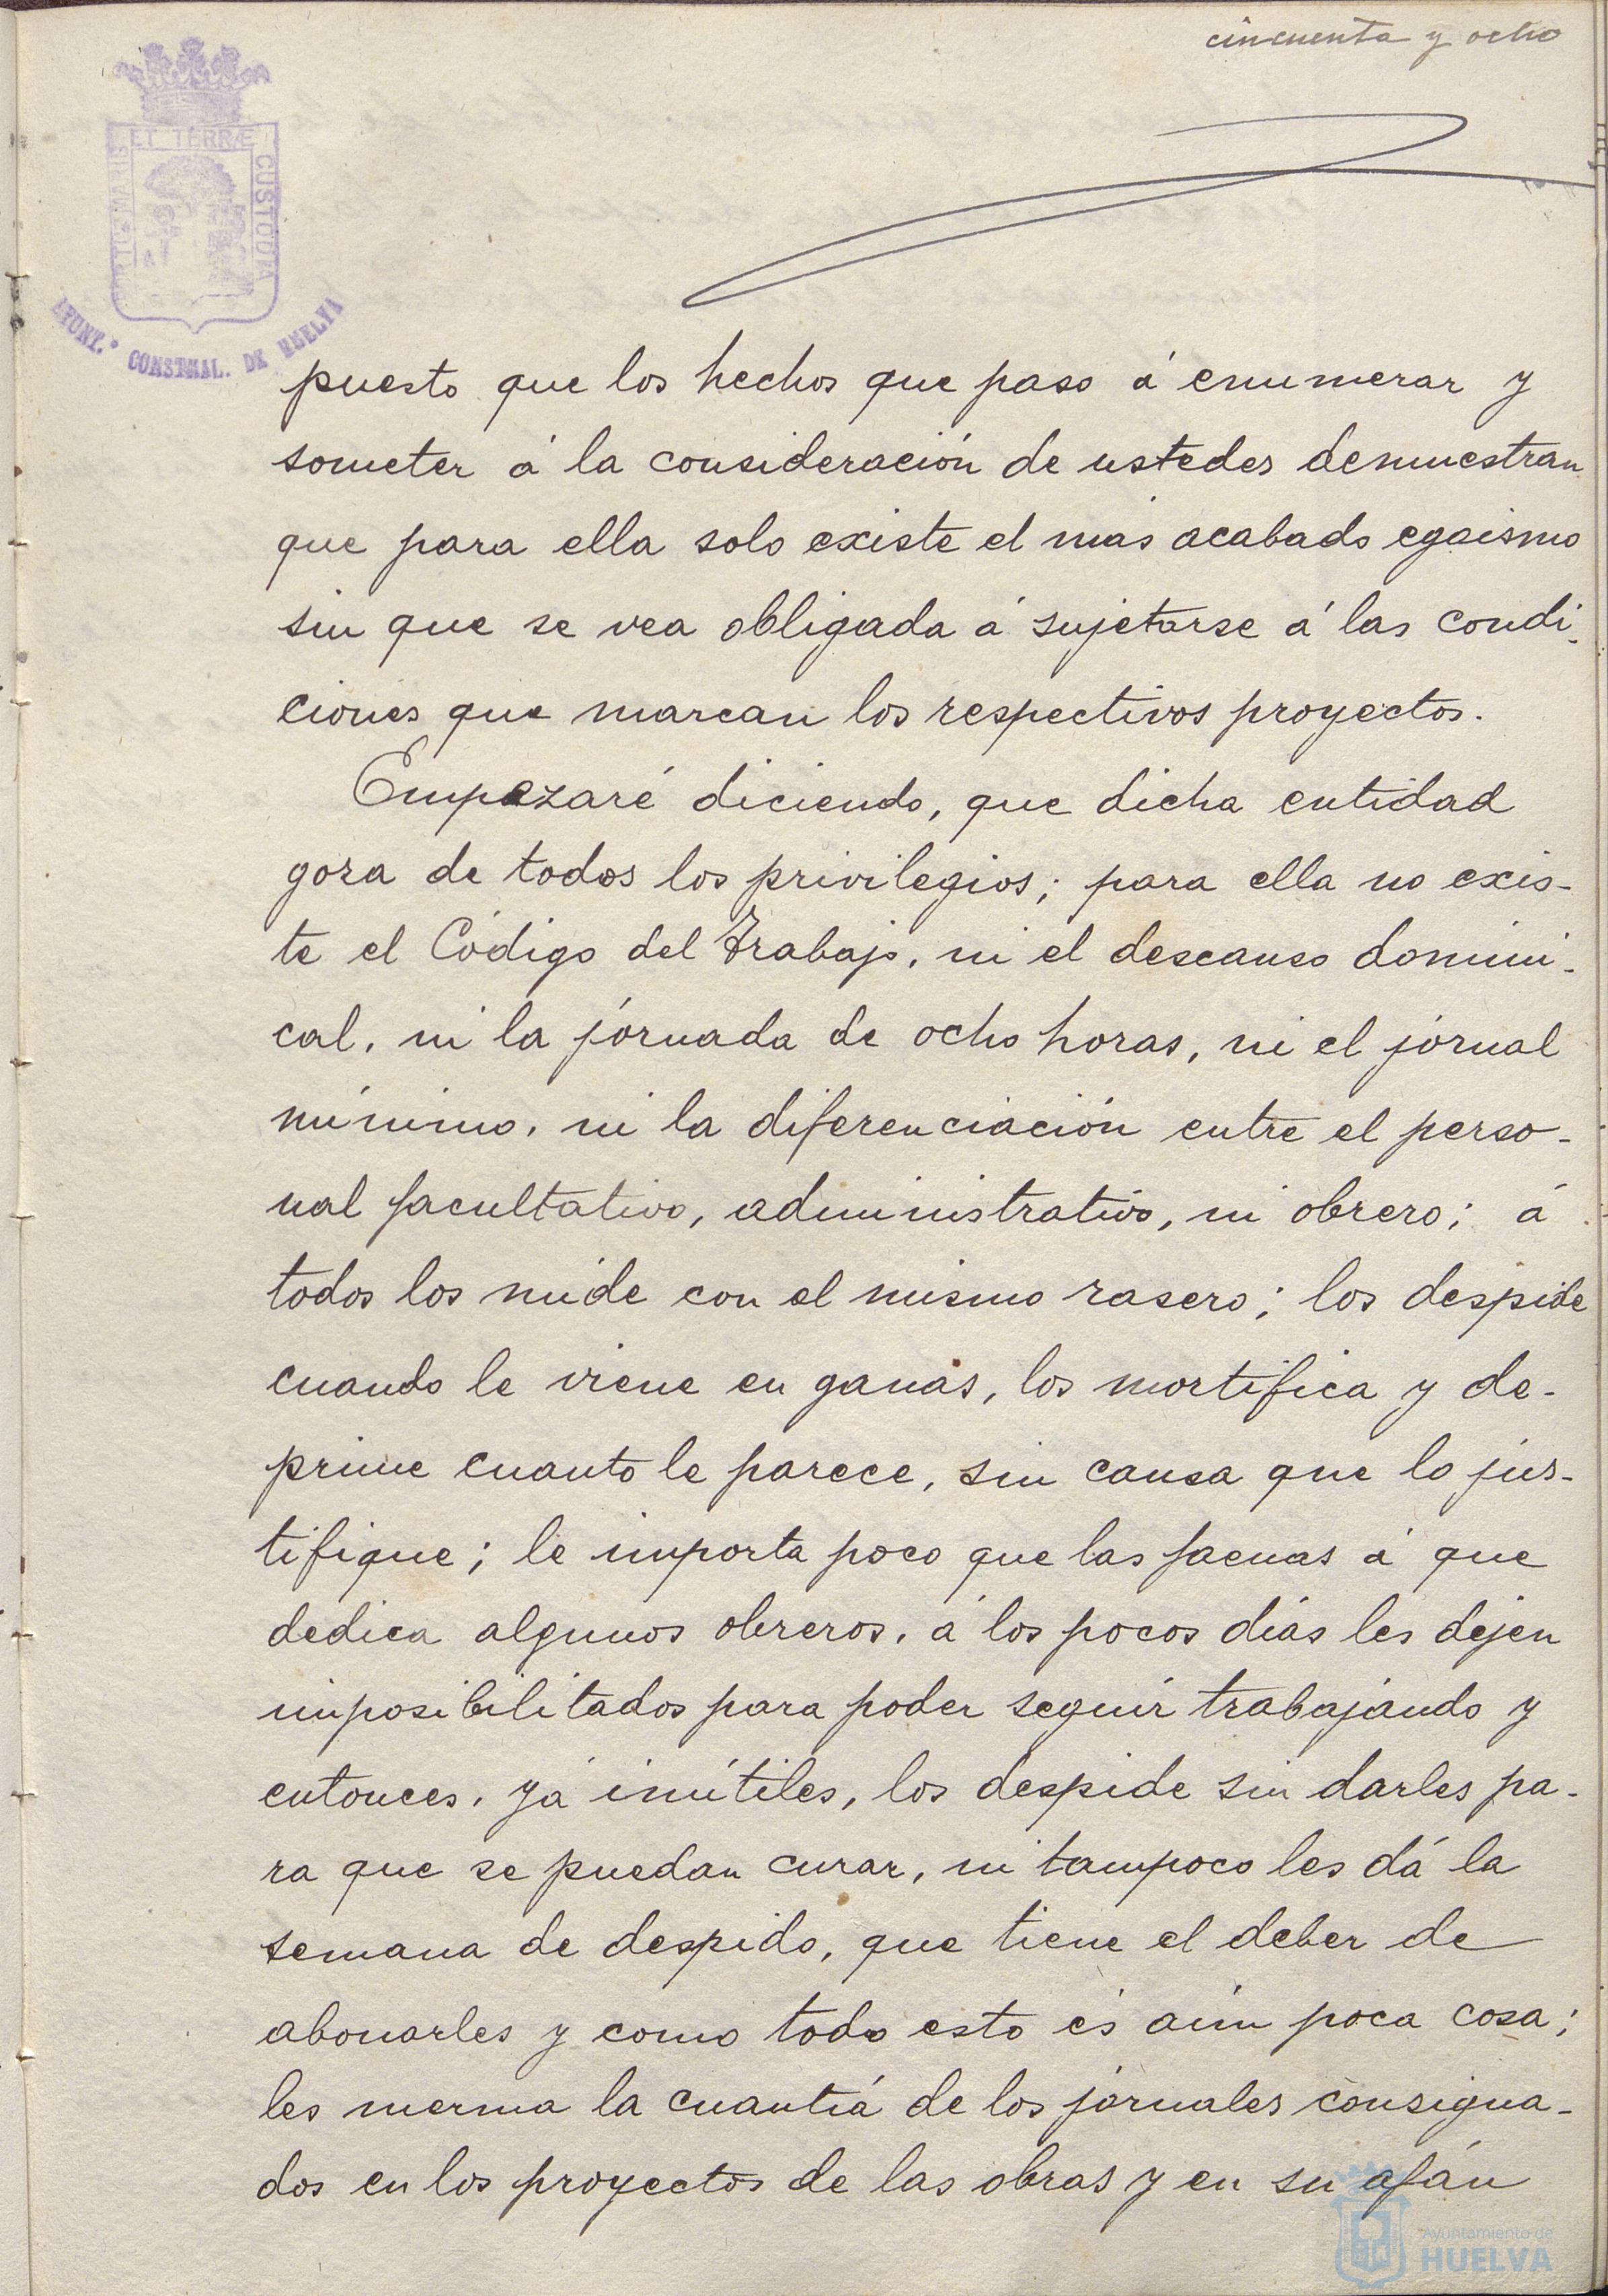 cincuenta y ocho
ET TERRÆ
CUSTODIA
MARIS
AYUNT.º CONSTNAL. DE HUELVA
puesto que los hechos que paso á enumerar y
someter á la consideración de ustedes demuestran
que para ella solo existe el más acabado egoismo
sin que se vea obligada á sujetarse á las condi-
ciones que marcan los respectivos proyectos.
Empezaré diciendo, que dicha entidad
goza de todos los privilegios; para ella no exis-
te el Código del Trabajo, ni el descanso domini-
cal, ni la jornada de ocho horas, ni el jornal
mínimo, ni la diferenciación entre el perso-
nal facultativo, administrativo, ni obrero; á
todos los mide con el mismo rasero; los despide
cuando le viene en ganas, los mortifica y de-
prime cuanto le parece, sin causa que lo jus-
tifique; le importa poco que las faenas á que
dedica algunos obreros, á los pocos días les dejen
imposibilitados para poder seguir trabajando y
entonces, yá inútiles, los despide sin darles pa-
ra que se puedan curar, ni tampoco les dá la
semana de despido, que tiene el deber de
abonarles y como todo esto és aún poca cosa;
les merma la cuantía de los jornales consigna-
dos en los proyectos de las obras y en su afán
Ayuntamiento de
HUELVA